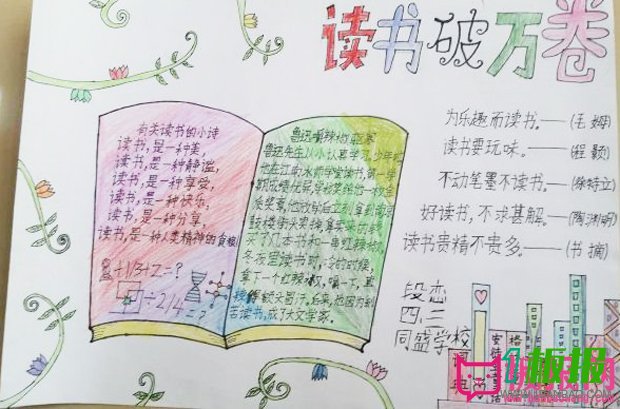 读书破万卷
有关读书的小诗
读书,是一种美,
读书,是一种静谧,
读书,是一种享受,
读书,是一种快乐,
读书,是一种分享,
读书,是一种人类精神的食粮
+1/3+Z=?
÷2/4=?
鲁迅嚼辣椒驱寒
鲁迅先生从小认真学习,少年时
在江南水师学堂读书,第一学
期成绩优异,学校奖给他一枚金
质奖章,他立刻拿到南京
鼓楼街头卖掉,
买了几本书和一串红辣椒,
冬夜里读书时,冷的时候,
摘下一个红辣椒,嚼一下,直
辣得额头冒汗。后来,
苦读书,成了大文学家。
为乐趣而读书。——(毛姆)
读书要玩味。——(程颢)
不动笔墨不读书。——(徐特立)
好读书,不求甚解。——(陶渊明)
读书贵精不贵多。——(书摘)
段恋
四,三
同盛学校
词典
安徒生
格
板报